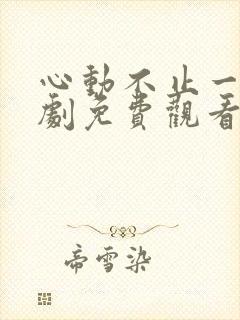 心動不止一
劇免費觀看
帝雪染